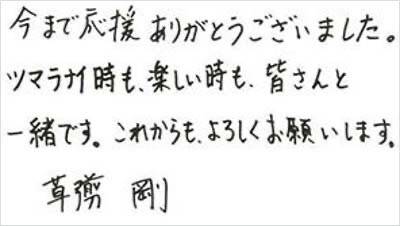 今まで応援ありがとうございました。
ツマラナイ時も、楽しい時も、皆さんと
一緒です。これからも、よろしくお願いします。
草彅 剛